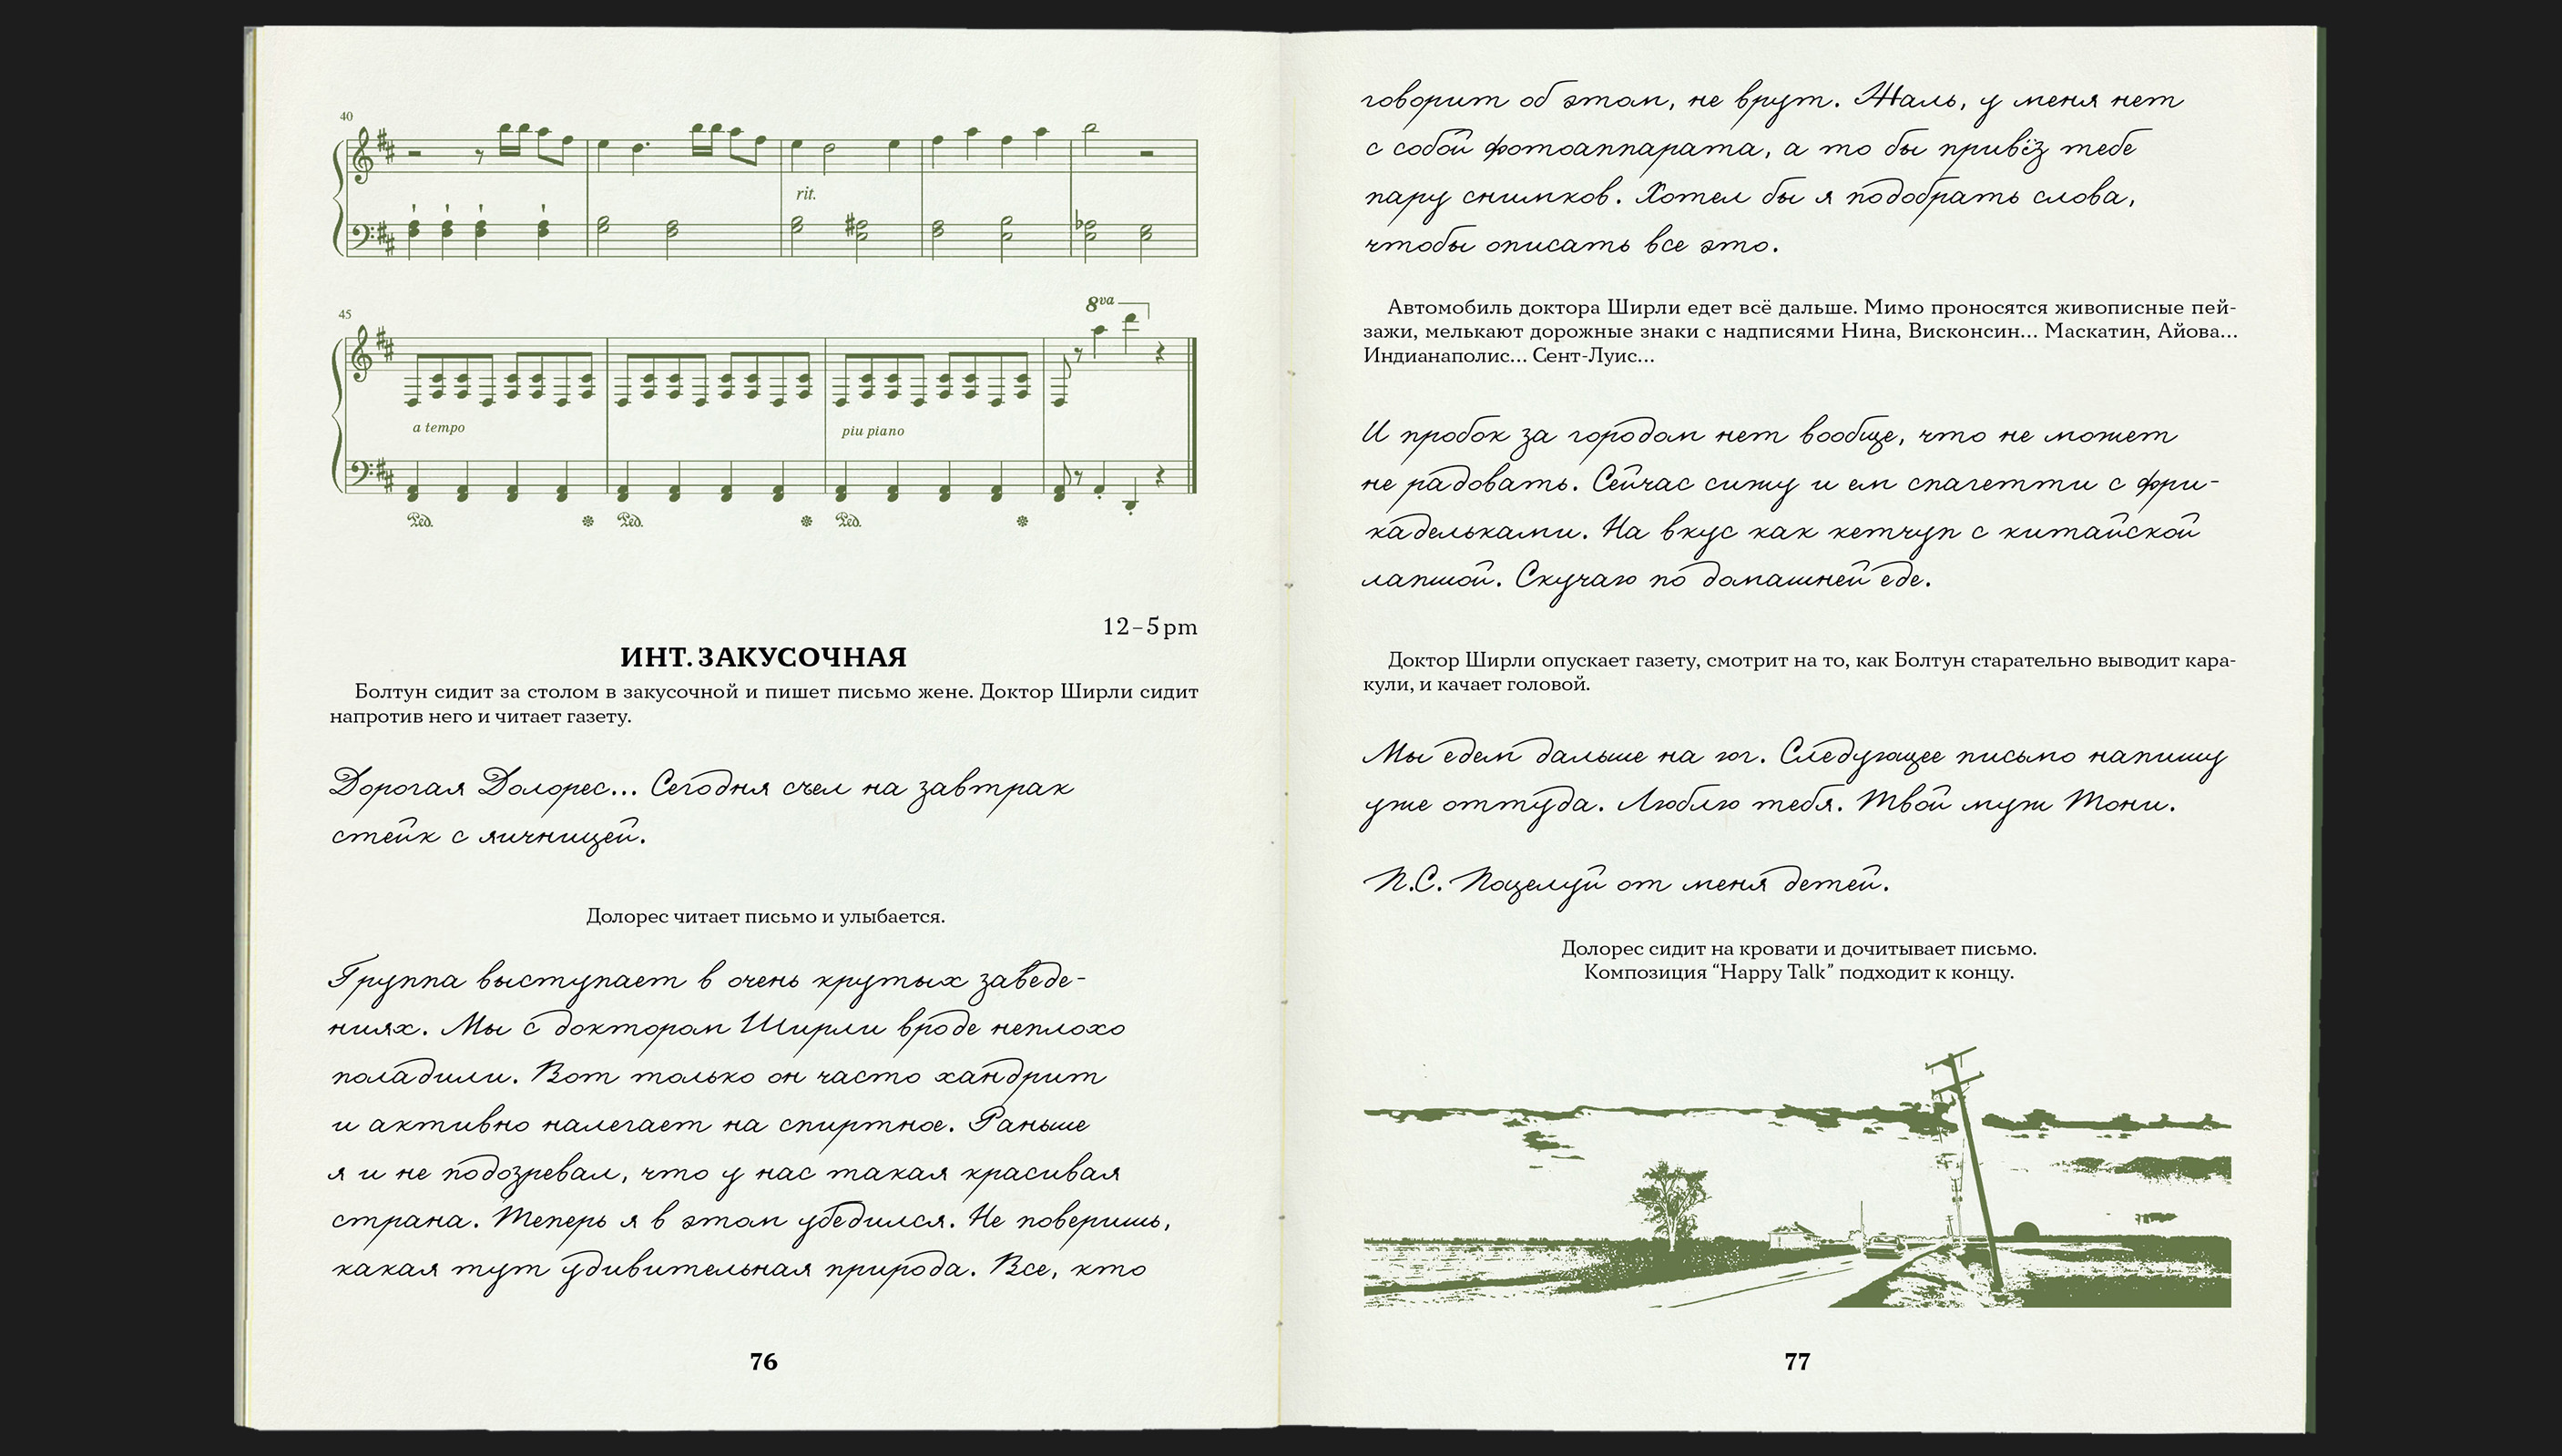 40
rit.
45
8va
a tempo
piu piano
Ped.
Ped.
Ped.
12–5 pm
ИНТ. ЗАКУСОЧНАЯ
Болтун сидит за столом в закусочной и пишет письмо жене. Доктор Ширли сидит
напротив него и читает газету.
Дорогая Долорес... Сегодня съел на завтрак
стейк с яичницей.
Долорес читает письмо и улыбается.
Группа выступает в очень крутых заведе-
ниях. Мы с доктором Ширли вроде неплохо
поладили. Вот только он часто хандрит
и активно налегает на спиртное. Раньше
я и не подозревал, что у нас такая красивая
страна. Теперь я в этом убедился. Не поверишь,
какая тут удивительная природа. Все, кто
76
говорит об этом, не врут. Жаль, у меня нет
с собой фотоаппарата, а то бы привёз тебе
пару снимков. Хотел бы я подобрать слова,
чтобы описать все это.
Автомобиль доктора Ширли едет всё дальше. Мимо проносятся живописные пей-
зажи, мелькают дорожные знаки с надписями Нина, Висконсин... Маскатин, Айова...
Индианаполис... Сент-Луис...
И пробок за городом нет вообще, что не может
не радовать. Сейчас сижу и ем спагетти с фри-
кадельками. На вкус как кетчуп с китайской
лапшой. Скучаю по домашней еде.
Доктор Ширли опускает газету, смотрит на то, как Болтун старательно выводит кара-
кули, и качает головой.
Мы едем дальше на юг. Следующее письмо напишу
уже оттуда. Люблю тебя. Твой муж Тони.
П.С. Поцелуй от меня детей.
Долорес сидит на кровати и дочитывает письмо.
Композиция “Happy Talk” подходит к концу.
77